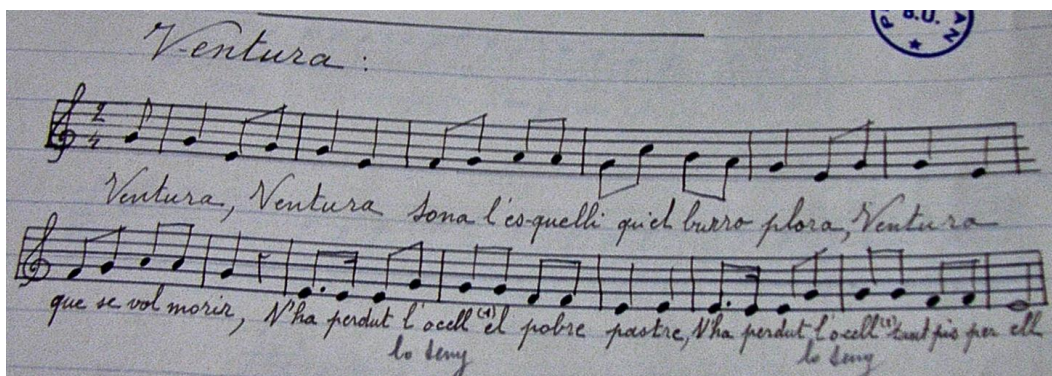 B.U.
Ventura :
2
4
Ventura, Ventura sona l'es-quelli qu'el burro plora, Ventura
que se vol morir, N'ha perdut l'ocell (1) el pobre pastre, N'ha perdut l'ocell (1) per ell
lo seny lo seny